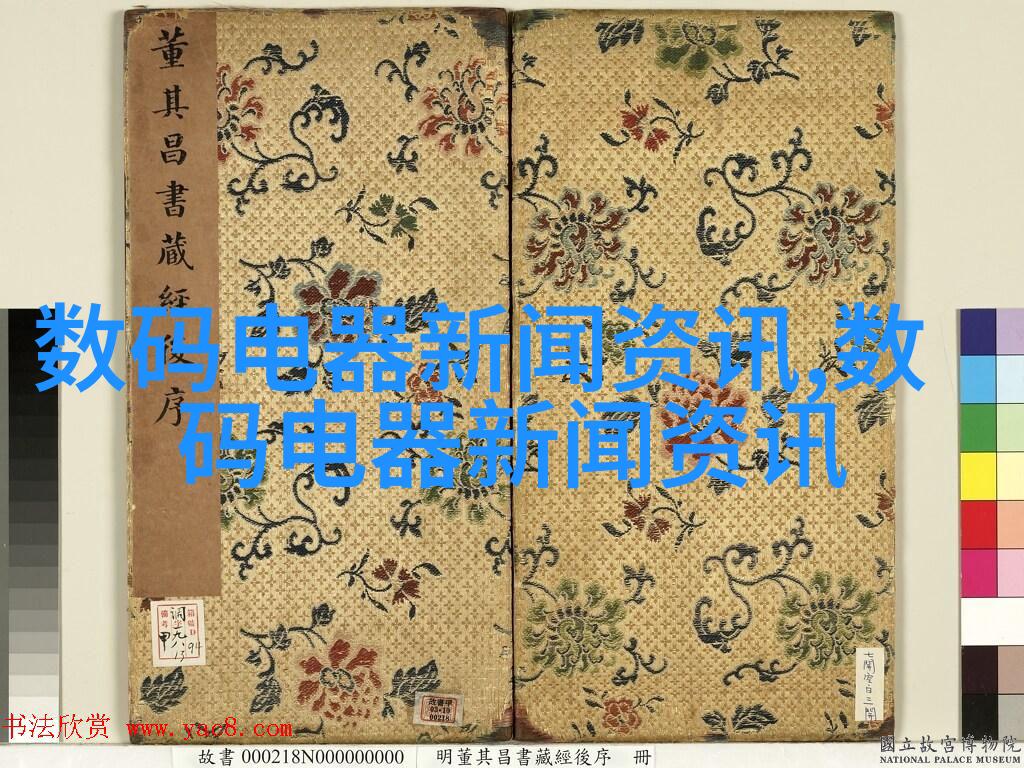 董其昌書藏經後序
数码电器新闻资讯,数
码电器新闻资讯
箱號D
備考
調字九八
94
甲
13
故書甲
03-10
00218
七開空白三開
书法欣赏 www.yac8.com
故書 000218N000000000
明董其昌書藏經後序 冊
國立故宮博物院
NATIONAL PALACE MUSEUM